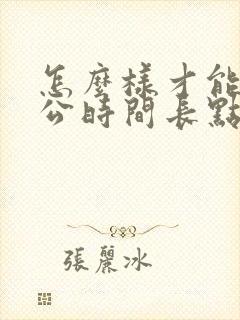 怎麼樣才能
公時間長點
張麗冰